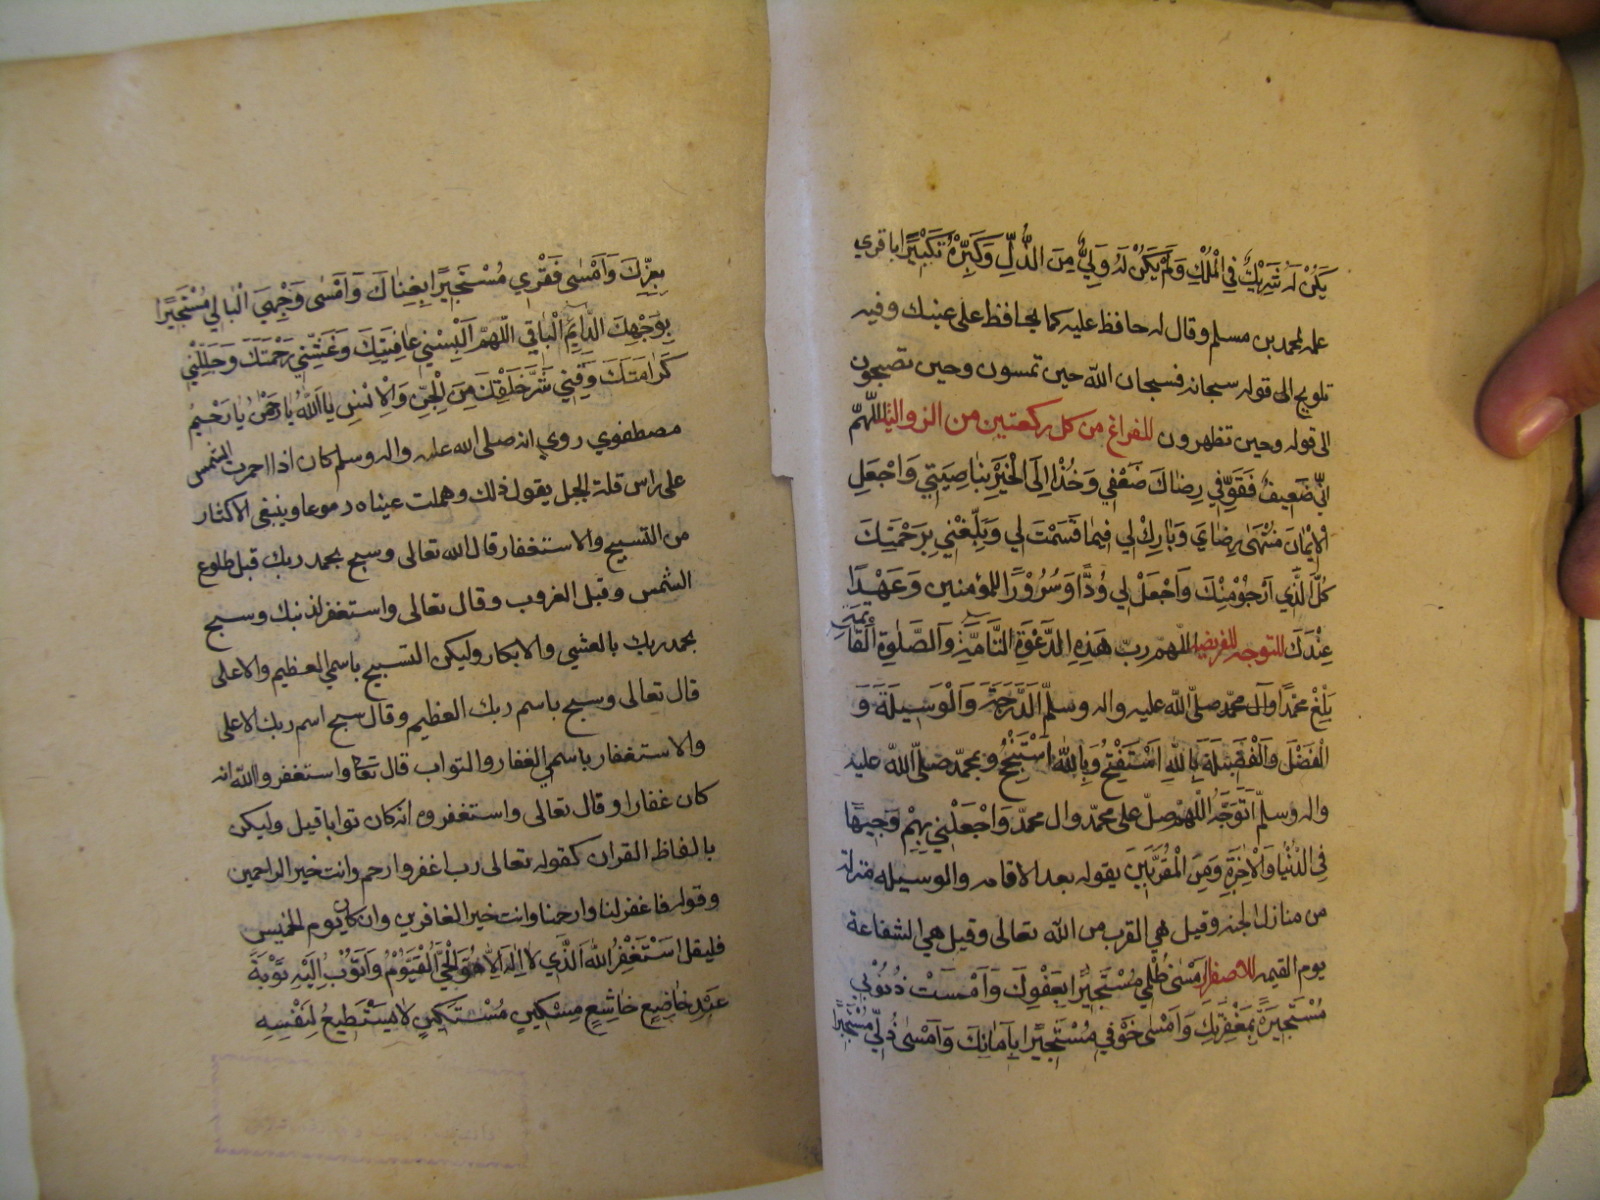 يَكُنْ لَهُ شَرِيْكٌ فِي الْمُلْكِ وَلَمْ يَكُنْ لَهُ وَلِيٌّ مِنَ الذُّلِّ وَكَبِّرْهُ تَكْبِيْرًا باقري
علمه لمحمد بن مسلم وقال له حافظ عليه كما تحافظ على عينك وفيه
تلويح الى قوله سبحانه فسبحان الله حين تمسون وحين تصبحون
الى قوله وحين تظهرون للفراغ من كل ركعتين من الزوالية اللّهمّ
اِنّي ضَعِيفٌ فَقَوِّ فِي رِضاكَ ضَعْفِي وَخُذْ اِلَى الْخَيْرِ بِناصِيَتِي وَاجْعَلِ
الْاِيْمانَ مُنْتَهى رِضايَ وَبارِكْ لِي فِيما قَسَمْتَ لِي وَبَلِّغْنِي بِرَحْمَتِكَ
كُلَّ الَّذِي اَرْجُوْ مِنْكَ وَاجْعَلْ لِي وُدًّا وَسُرُوْرًا لِلمُؤمنين وَعَهْدًا
عِنْدَكَ للتوجه للفريضة اللّهم ربّ هَذِهِ الدَّعْوَةِ التَّامَّةِ وَالصَّلوةِ الْقائمَةِ
بَلِّغْ مُحَمَّدًا وَآل محمّد صلّى اللّه عليه واله وسلّم الدَّرَجَةَ وَالْوَسِيلَةَ وَ
الْفَضْلَ وَالْفَضِيْلَةَ بِاللّهِ اَسْتَفْتِحُ وَبِاللّهِ اَسْتَنْجِحُ وبمحمّد صلّى اللّه عليه
واله وسلّم اَتَوَجَّهُ اللّهمّ صلّ على محمّد وال محمّد وَاجْعَلْنِي بِهِمْ وَجِيهًا
فِي الدُّنْيا وَالْاخِرَةِ وَمِنَ الْمُقَرَّبِيْنَ يقوله بعد الاقامه والوسيله منزلة
من منازل الجنه وقيل هي القرب من الله تعالى وقيل هي الشفاعة
يوم القيمه للاصفرار اَمْسى ظُلْمِي مُسْتَجِيْرًا بِعَفْوِكَ وَاَمْسَتْ ذُنُوْبِي
مُسْتَجِيْرَةً بِمَغْفِرَتِكَ وَاَمْسى خَوْفِي مُسْتَجِيْرًا بِاَمانِكَ وَاَمْسى ذُلِّي مُسْتَجِيْرًا
بِعِزِّكَ وَاَمْسى فَقْرِي مُسْتَجِيْرًا بِغِناكَ وَاَمْسى وَجْهِيَ الْبالِي مُسْتَجِيْرًا
بِوَجْهِكَ الدّائِمِ الْباقِي اللّهُمَّ اَلْبِسْنِي عافِيَتَكَ وَغَشِّنِي رَحْمَتَكَ وَجَلِّلْنِي
كَرامَتَكَ وَقِنِي شَرَّ خَلْقِكَ مِنَ الْجِنِّ وَالْاِنْسِ يا اَللّهُ يا رَحْمنُ يا رَحْيمُ
مصطفوي روي انه صلى الله عليه واله وسلم كان اذا احمرت الشمس
على راس قلة الجبل يقول ذلك وهملت عيناه دموعا وينبغي الاكثار
من التسبيح والاستغفار قال الله تعالى وسبح بحمد ربك قبل طلوع
الشمس وقبل الغروب وقال تعالى واستغفر لذنبك وسبح
بحمد ربك بالعشي والابكار وليكن التسبيح باسمي العظيم والاعلى
قال تعالى وسبح باسم ربك العظيم وقال سبح اسم ربك الاعلى
والاستغفار باسمي الغفار والتواب قال تعا واستغفروا الله انه
كان غفارا وقال تعالى واستغفروه انه كان توابا قيل وليكن
بالفاظ القران كقوله تعالى رب اغفر وارحم وانت خير الراحمين
وقوله فاغفر لنا وارحمنا وانت خير الغافرين وان كان يوم الخميس
فليقل اَسْتَغْفِرُ اللّهَ الَّذِي لا اِلهَ اِلّا هُوَ الْحَيُّ الْقَيُّوْمُ وَاَتُوْبُ اِلَيْهِ تَوْبَةَ
عَبْدٍ خاضِعٍ خاشِعٍ مِسْكِينٍ مُسْتَكِينٍ لا يَسْتَطِيْعُ لِنَفْسِهِ